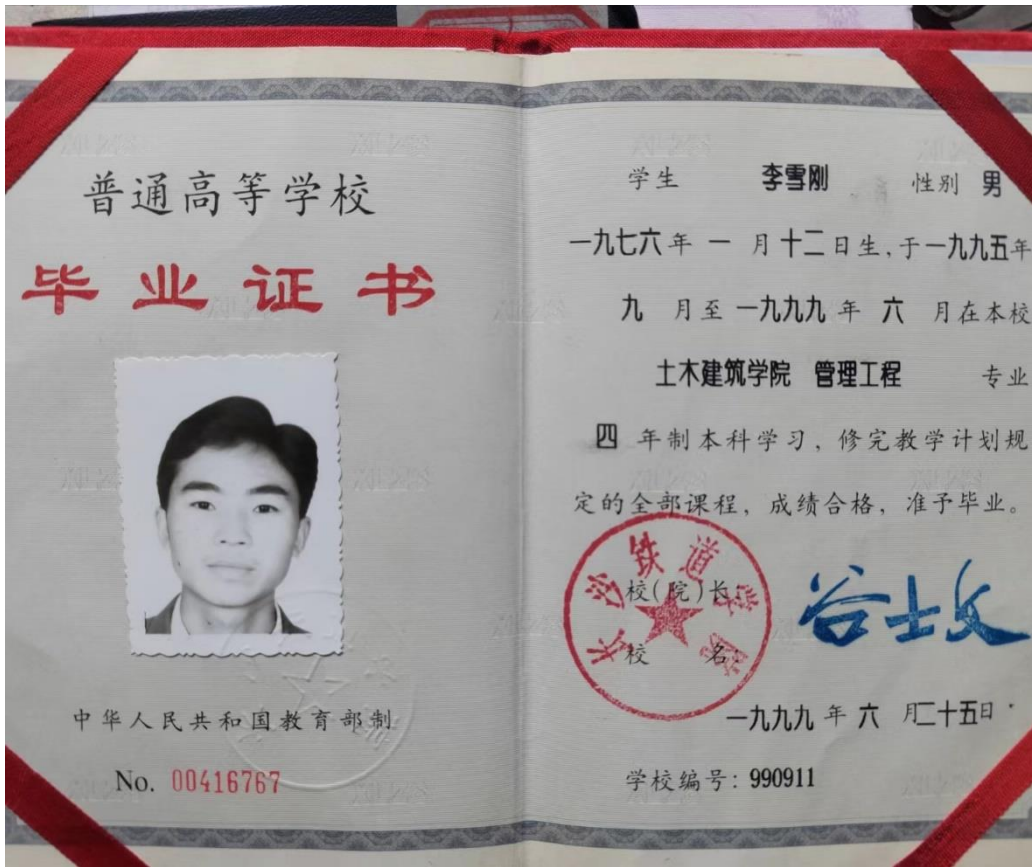 普通高等学校
毕业证书
中华人民共和国教育部制
No. 00416767
学生 李雪刚 性别 男
一九七六年 一 月十二日生,于一九九五年
九 月至一九九九年 六 月在本校
土木建筑学院 管理工程 专业
四 年制本科学习，修完教学计划规
定的全部课程，成绩合格，准予毕业。
长沙铁道学院
校(院)长: 谷士文
校 名:
一九九九年六 月二十五日
学校编号: 990911